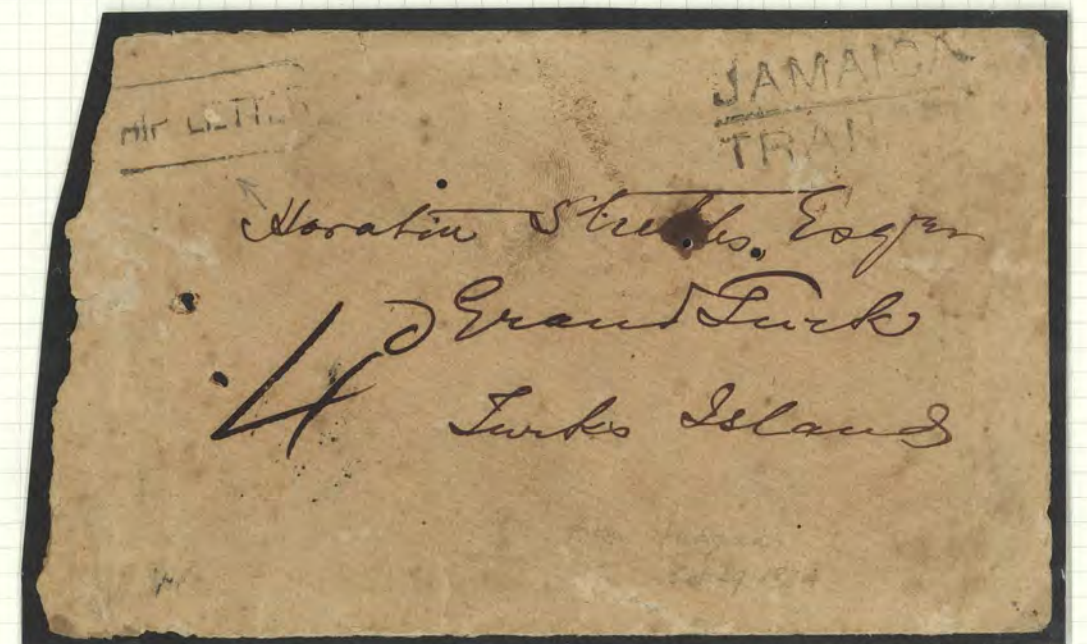 HIP LETTER
JAMAICA
TRAN
Horatio Stubbs, Esqre
4d
Grand Turk
Turks Islands